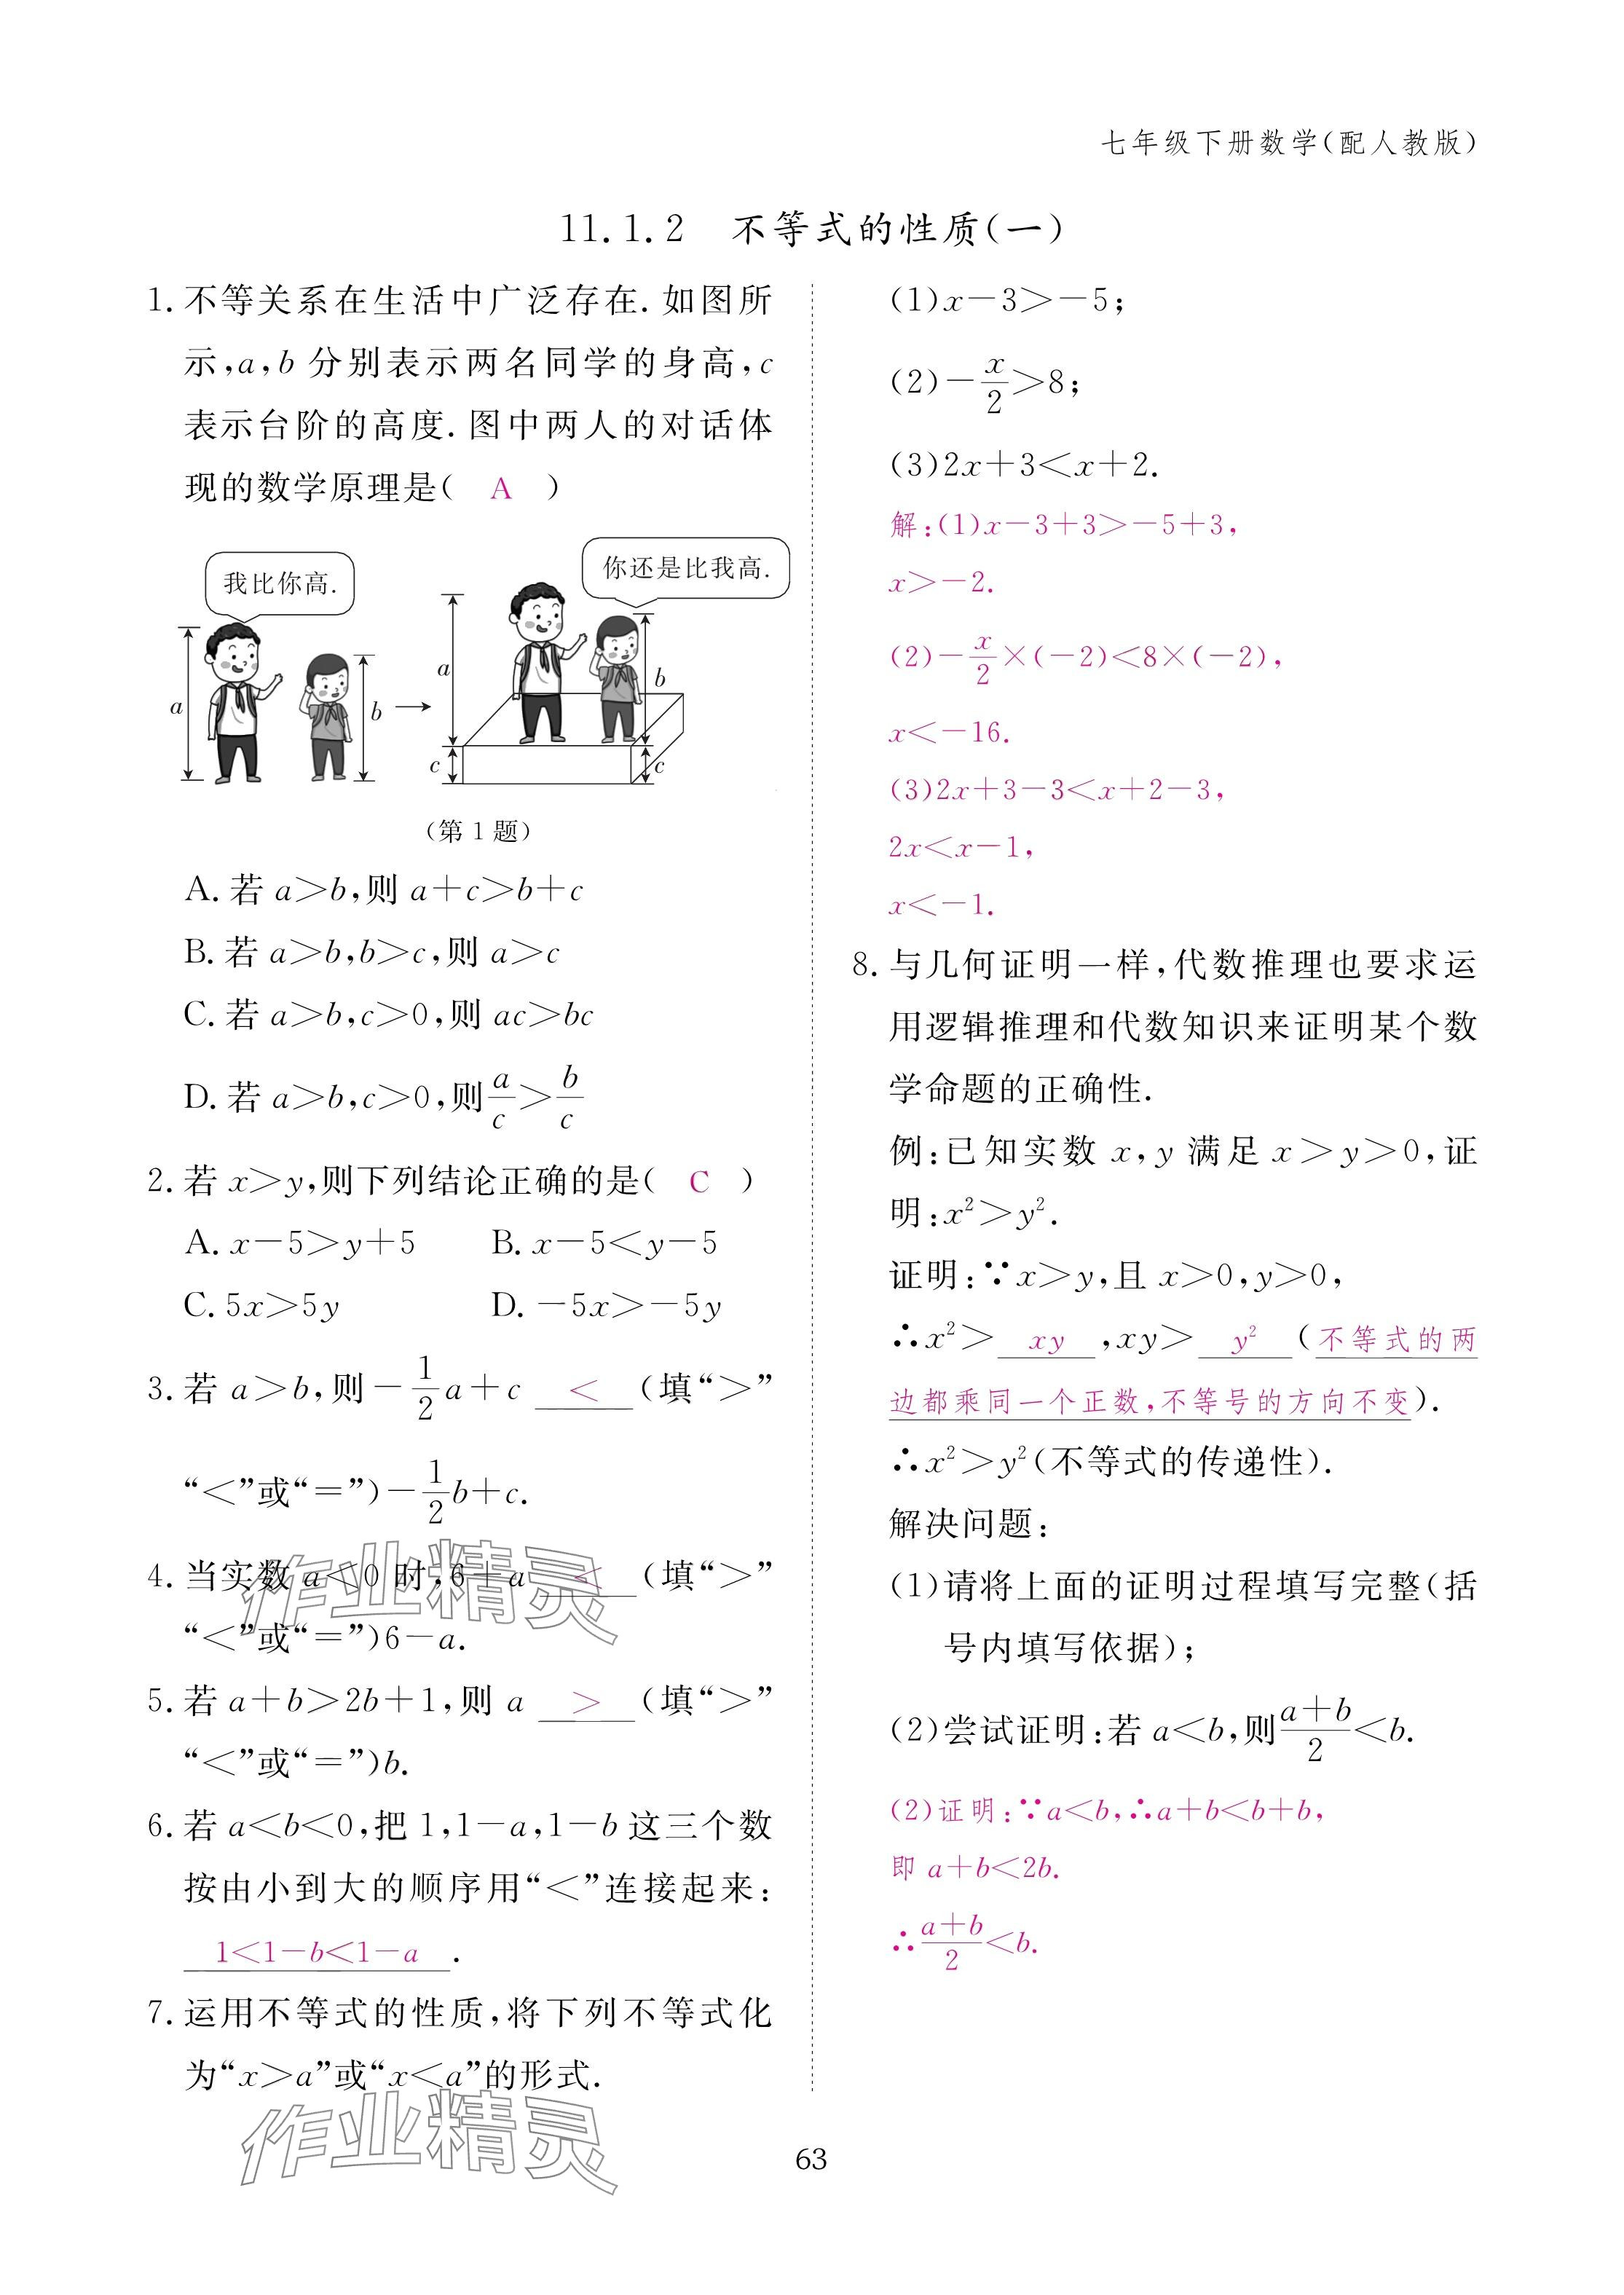 七年级下册数学(配人教版)
11.1.2 不等式的性质(一)
1. 不等关系在生活中广泛存在. 如图所
示,a,b 分别表示两名同学的身高,c
表示台阶的高度. 图中两人的对话体
现的数学原理是( A )
我比你高.
你还是比我高.
a
b
a
b
c
c
(第 1 题)
A. 若 a>b,则 a+c>b+c
B. 若 a>b,b>c,则 a>c
C. 若 a>b,c>0,则 ac>bc
D. 若 a>b,c>0,则 a/c > b/c
2. 若 x>y,则下列结论正确的是( C )
A. x-5>y+5 B. x-5<y-5
C. 5x>5y D. -5x>-5y
3. 若 a>b,则 -1/2 a+c < (填“>”
“<”或“=”)-1/2 b+c.
4. 当实数 a<0 时,6+a < (填“>”
“<”或“=”)6-a.
5. 若 a+b>2b+1,则 a > (填“>”
“<”或“=”)b.
6. 若 a<b<0,把 1,1-a,1-b 这三个数
按由小到大的顺序用“<”连接起来:
1<1-b<1-a .
7. 运用不等式的性质,将下列不等式化
为“x>a”或“x<a”的形式.
(1)x-3>-5;
(2)-x/2>8;
(3)2x+3<x+2.
解:(1)x-3+3>-5+3,
x>-2.
(2)-x/2×(-2)<8×(-2),
x<-16.
(3)2x+3-3<x+2-3,
2x<x-1,
x<-1.
8. 与几何证明一样,代数推理也要求运
用逻辑推理和代数知识来证明某个数
学命题的正确性.
例:已知实数 x,y 满足 x>y>0,证
明:x²>y².
证明:∵x>y,且 x>0,y>0,
∴x²> xy ,xy> y² (不等式的两
边都乘同一个正数,不等号的方向不变).
∴x²>y²(不等式的传递性).
解决问题:
(1)请将上面的证明过程填写完整(括
号内填写依据);
(2)尝试证明:若 a<b,则(a+b)/2<b.
(2)证明:∵a<b,∴a+b<b+b,
即 a+b<2b.
∴(a+b)/2<b.
作业精灵
作业精灵
63